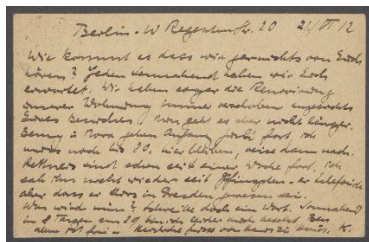 Berlin-W Regentenstr. 20 21/VI 12
Wie kommt es dass wir gar nichts von Euch
hören? Jeden Sonnabend haben wir Euch
erwartet. Wir haben sogar die Renovierung
unserer Wohnung immer verschoben
Eures Besuches. Nun geht es aber nicht länger.
Benny u Nora gehen Anfang Juli fort, ich
muss noch bis 20. hier bleiben, reise dann nach.
sind schon seit einer Woche fort. Ich
sah ihn nicht wieder seit Pfingsten. er telefonierte
aber dass er in Dresden gewesen sei.
Was wird nun? Schreibe doch ein Wort. Sonnabend
in 8 Tagen
also frei. Herzliche Grüsse von Haus zu Haus. K.